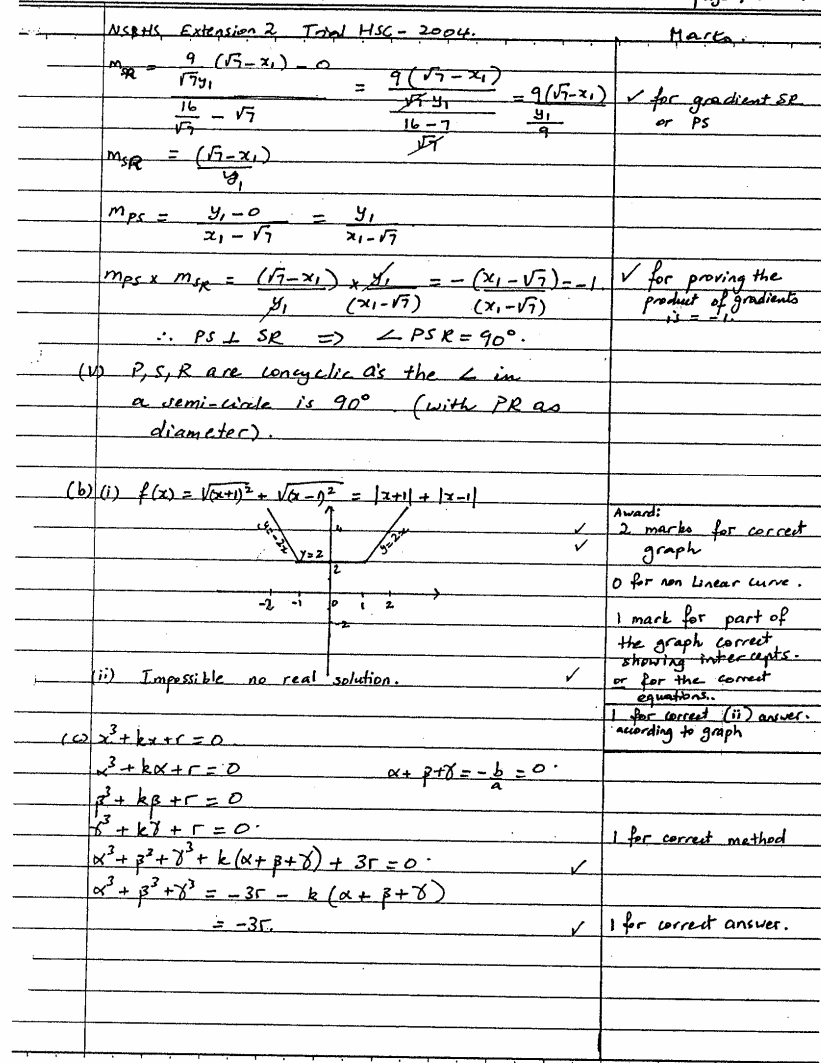 NSBHS Extension 2 Trial HSC - 2004. Marks.
m_SR = (9/(√7y₁) (√7-x₁) - 0)/(16/√7 - √7) = (9(√7-x₁)/(√7 y₁))/((16-7)/√7) = (9(√7-x₁)/y₁)/9 ✓ for gradient SR
or PS
m_SR = (√7-x₁)/y₁
m_PS = (y₁-0)/(x₁-√7) = y₁/(x₁-√7)
m_PS × m_SR = (√7-x₁)/y₁ × y₁/(x₁-√7) = -(x₁-√7)/(x₁-√7) = -1 ✓ for proving the
product of gradients
is = -1.
∴ PS ⊥ SR ⇒ ∠PSR = 90°.
(V) P, S, R are concyclic as the ∠ in
a semi-circle is 90° (with PR as
diameter).
(b) (i) f(x) = √(x+1)² + √(x-1)² = |x+1| + |x-1|
Award:
y=-2x 4 y=2x ✓ 2 marks for correct
y=2 ✓ graph
2
0 for non Linear curve.
-2 -1 0 1 2
-2
1 mark for part of
the graph correct
showing intercepts.
(ii) Impossible no real solution. ✓ or for the correct
equations..
1 for correct (ii) answer.
according to graph
(c) x³+kx+r = 0
α³+kα+r = 0 α+β+γ = -b/a = 0.
β³+kβ+r = 0
γ³+kγ+r = 0.
1 for correct method
α³+β³+γ³+k(α+β+γ)+3r = 0. ✓
α³+β³+γ³ = -3r - k(α+β+γ)
= -3r. ✓ 1 for correct answer.